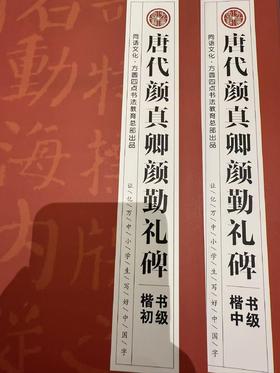 唐代颜真卿颜勤礼碑
文化·方圆四点书法教育总部出品
让亿万中小学生写好中国字
楷书
中级
唐代颜真卿颜勤礼碑
文化·方圆四点书法教育总部出品
让亿万中小学生写好中国字
楷书
初级